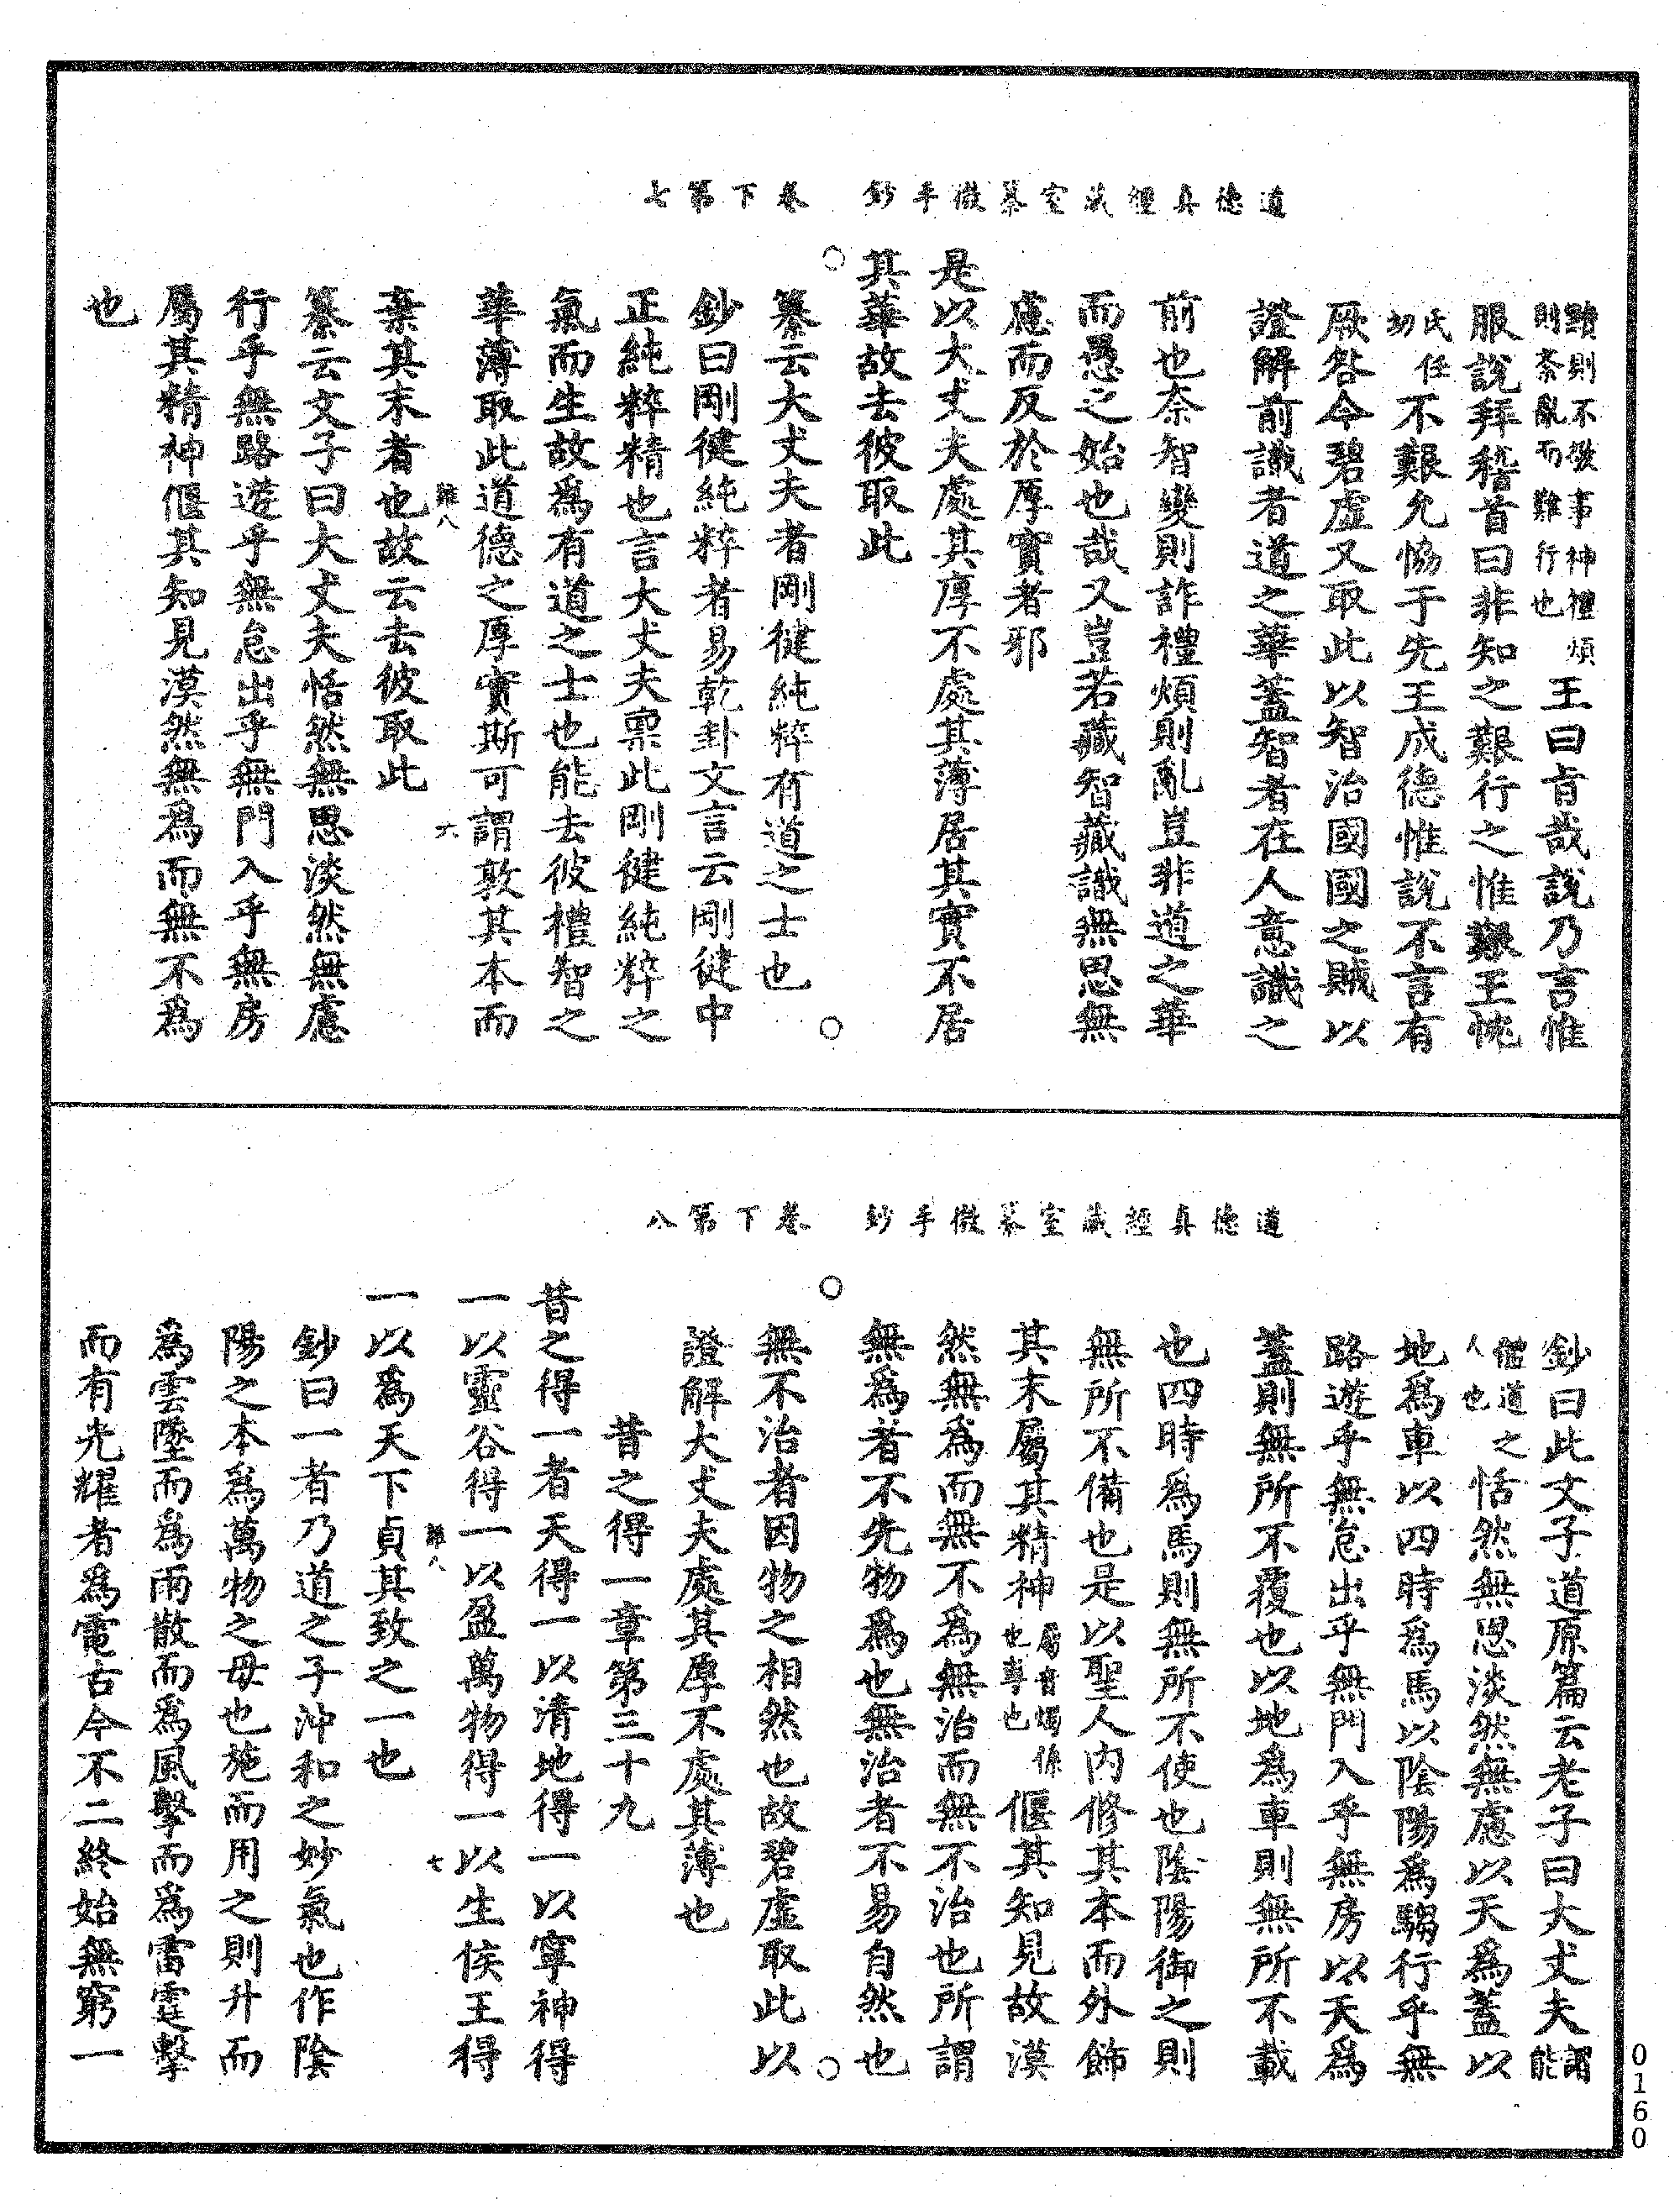 道德真經藏室纂微手鈔　卷下第七
黷則不敬事神禮煩則紊亂而難行也王曰旨哉說乃言惟
服說拜稽首曰非知之艱行之惟艱王忱
不艱允恊于先王成德惟說不言有
厥咎今碧虛又取此以智治國國之賊以
證解前識者道之華蓋智者在人意識之
前也奈智變則詐禮煩則亂豈非道之華
而愚之始也哉又豈若藏智藏識無思無
慮而反於厚實者邪
是以大丈夫處其厚不處其薄居其實不居
其華故去彼取此
纂云大丈夫者剛健純粹有道之士也
鈔曰剛健純粹者易乾卦文言云剛健中
正純粹精也言大丈夫禀此剛健純粹之
氣而生故爲有道之士也能去彼禮智之
華薄取此道德之厚實斯可謂敦其本而
難八　六
棄其末者也故云去彼取此
纂云文子曰大丈夫恬然無思淡然無慮
行乎無路遊乎無怠出乎無門入乎無房
屬其精神偃其知見漠然無爲而無不爲
也
道德真經藏室纂微手鈔　卷下第八
鈔曰此文子道原篇云老子曰大丈夫謂能
體道之人也恬然無思淡然無慮以天爲蓋以
地爲車以四時爲馬以陰陽爲騶行乎無
路遊乎無怠出乎無門入乎無房以天爲
蓋則無所不覆也以地爲車則無所不載
也四時爲馬則無所不使也陰陽御之則
無所不備也是以聖人内修其本而外飾
其末屬其精神屬音燭係也專也偃其知見故漠
然無爲而無不爲無治而無不治也所謂
無爲者不先物爲也無治者不易自然也
無不治者因物之相然也故碧虛取此以
證解大丈夫處其厚不處其薄也
昔之得一章第三十九
昔之得一者天得一以清地得一以寧神得
一以靈谷得一以盈萬物得一以生侯王得
難八　七
一以爲天下貞其致之一也
鈔曰一者乃道之子沖和之妙氣也作陰
陽之本爲萬物之母也施而用之則升而
爲雲墜而爲雨散而爲風擊而爲雷霆擊
而有光耀者爲電古今不二終始無窮一
0160